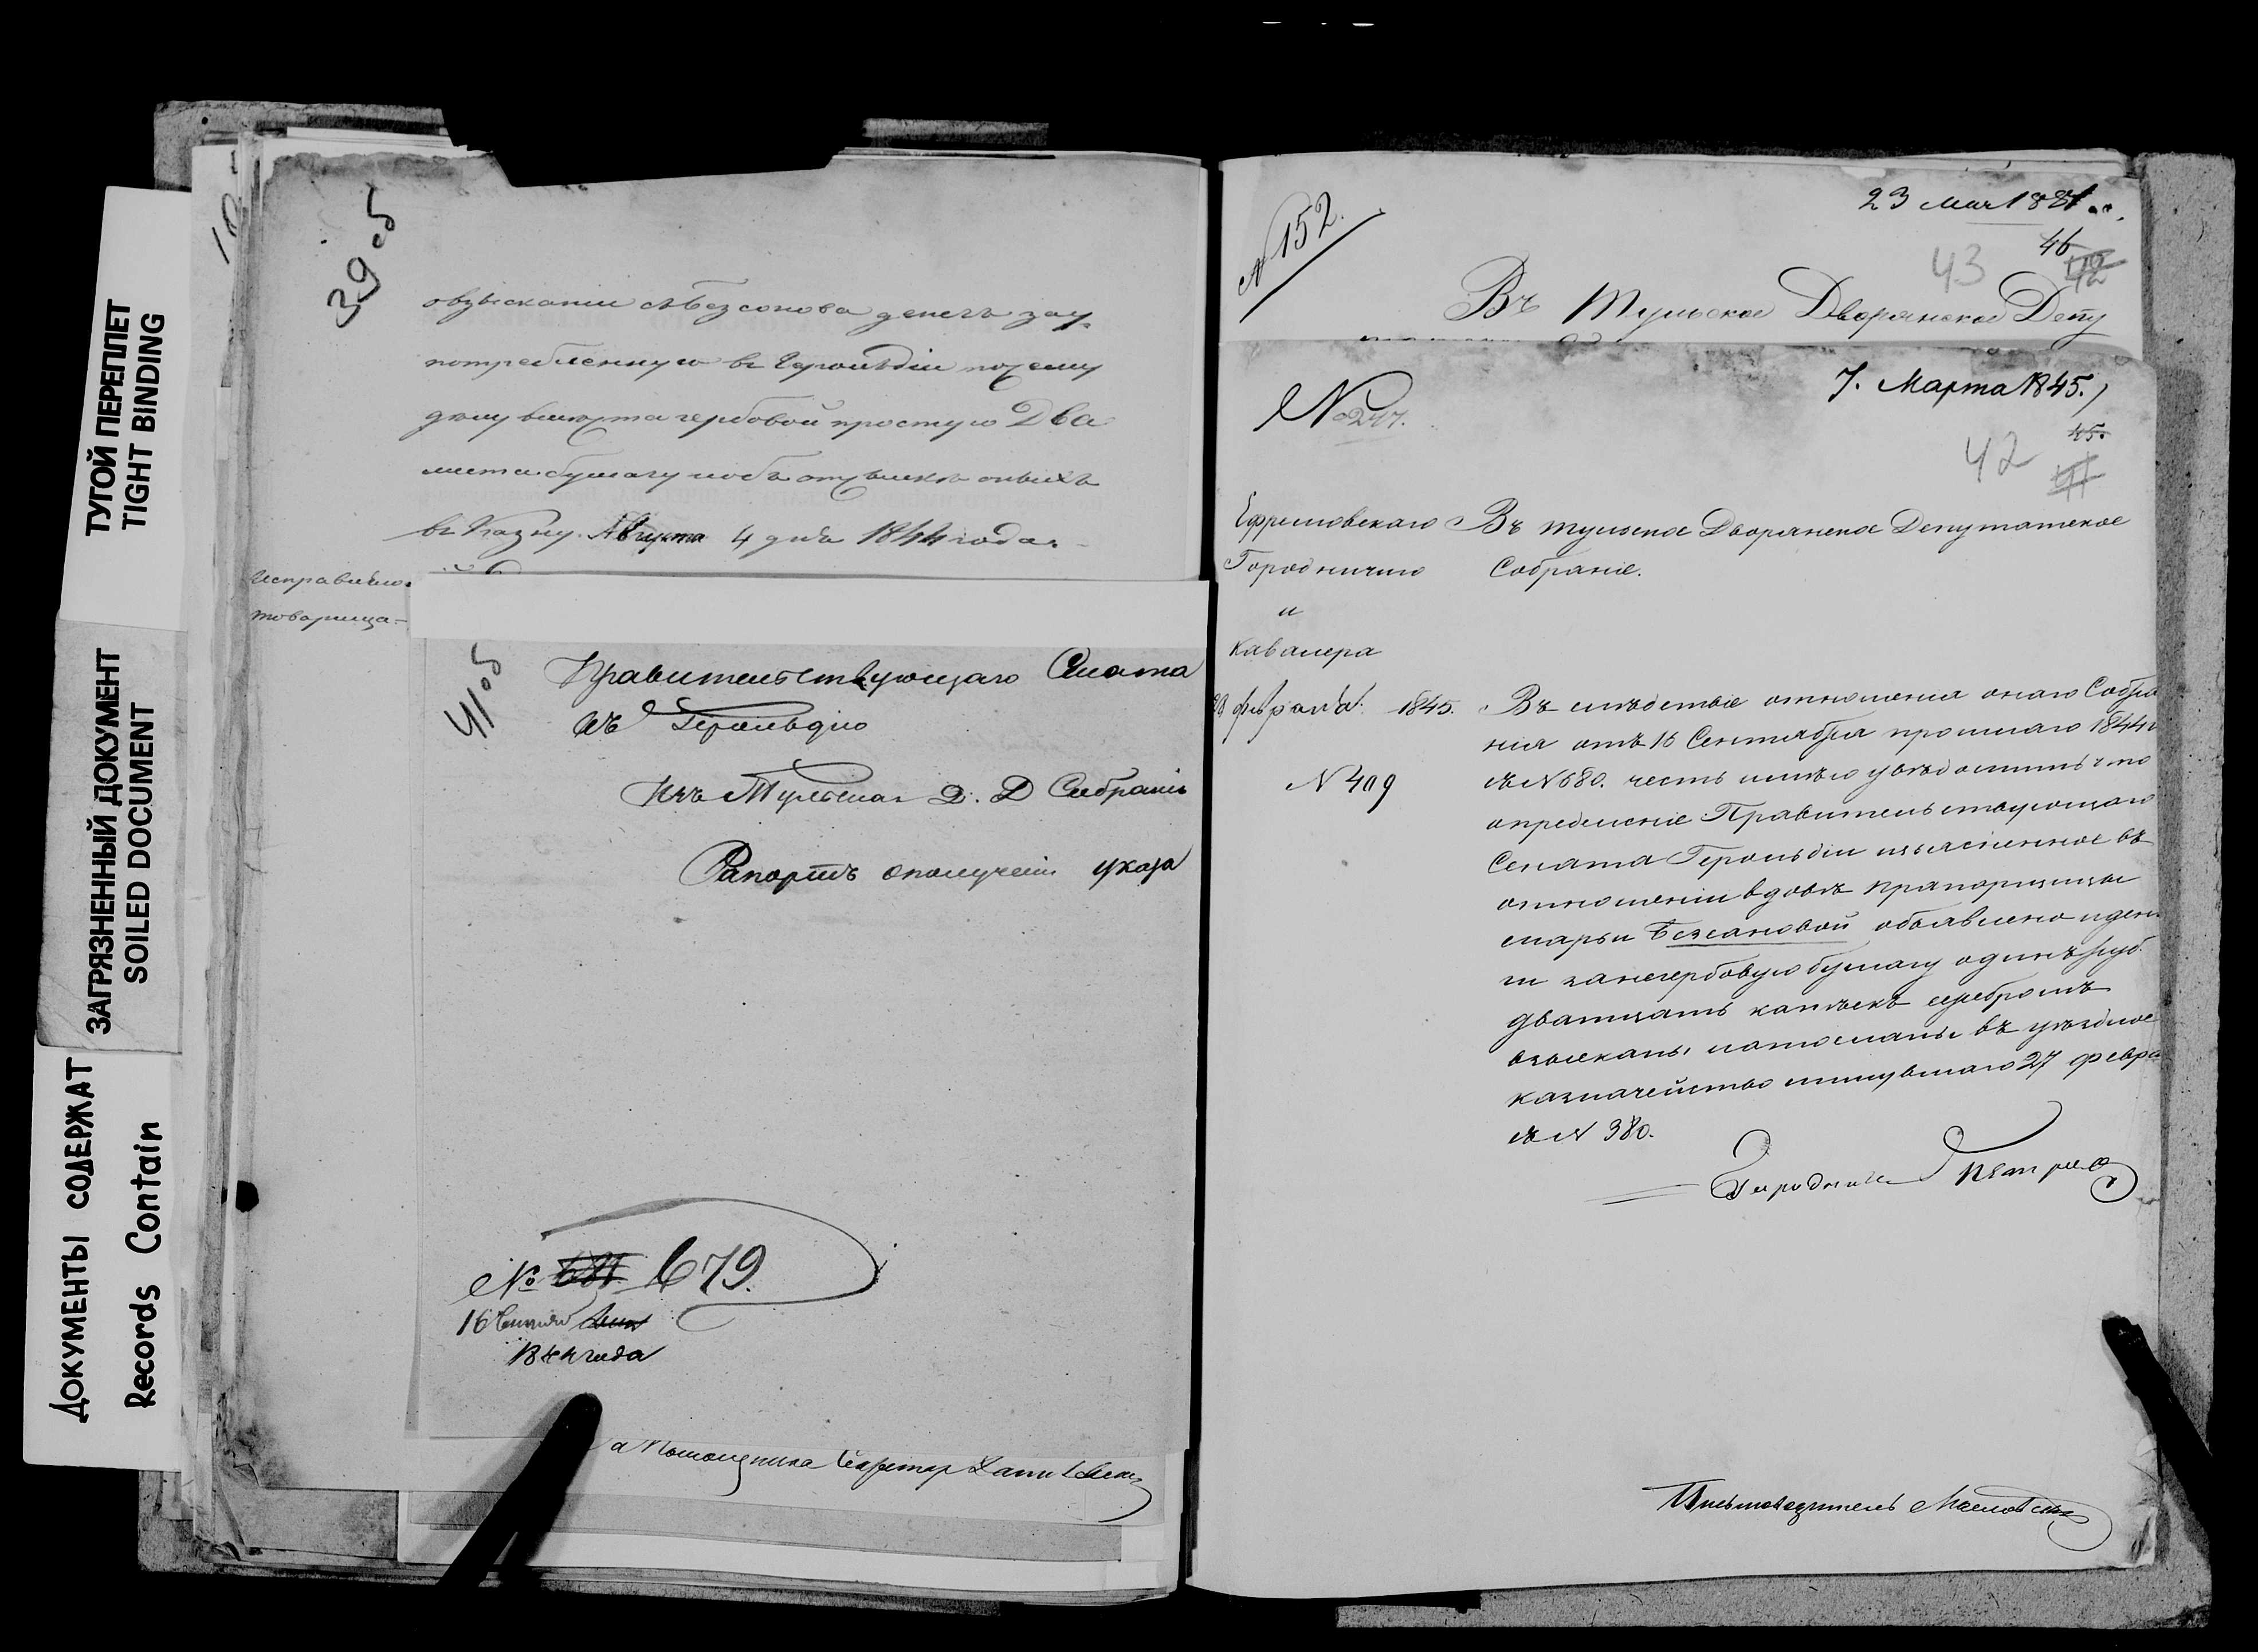 ТУГОЙ ПЕРЕПЛЕТ
TIGHT BINDING
ЗАГРЯЗНЕННЫЙ ДОКУМЕНТ
SOILED DOCUMENT
ДОКУМЕНТЫ СОДЕРЖАТ
Records Contain
39 об
овзыскании съ Безсонова денегъ зау-
потребленную въ Герольдіи посему
делу вместо гербовой простую Два
листа бумагу иобъ отсылке оныхъ
въ Казну. Августа 4 дня 1844 года.
товарища
41 об
Правительствующаго Сената
въ Герольдію
Изъ Тульскаго Д. Д Собранія
Рапортъ ополученіи указа
№ 679.
16 Сентября
1844 года
Помощника Секретаря
N 152.
23 1881
46
43
42
Въ Тульское Дворянское Депу
№ 247.
7. Марта 1845.
45.
42
41
Ефремовскаго
Городничаго
и
Кавалера
28 февраля 1845.
N 409
Въ тульское Дворянское Депутатское
Собраніе.
Въ следствіе отношенія онаго Собра
нія отъ 16 Сентября прошлаго 1844 г
за N 680. честь имею уведомить что
определеніе Правительствующаго
Сената Герольдіи изъясненное въ
отношеніи вдове прапорщице
марьи Безсановой объявлено иденъ
ги занегербовую бумагу одинъ руб.
дватцать капеекъ серебромъ
взысканы иотосланы въ уездное
казначейство минувшаго 27 февра
за N 380.
Городничій
Письмоводитель